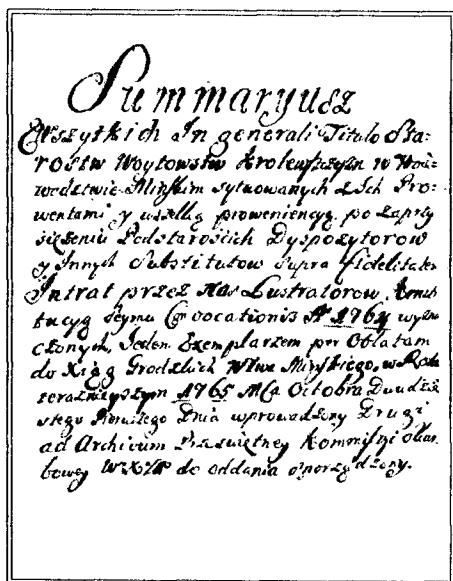 Summaryusz
Wszytkich In generali Titulo Sta:
rostw Woytowstw Krolewszczyzn w Woie:
wodztwie Minskim sytuowanych z Ich Pro:
wentami y wszelką proweniencyą, po zaprzy
siężeniu Podstarościch Dyspozytorow
y Innych Substitutow supra fidelitatem
Intrat przez Nas Lustratorow, Konsty
tucyą Seymu Convocationis A° 1764 wyzna
czonych, Jeden Exemplarzem per Oblatam
do Xiąg Grodzkich Wtwa Minskiego, w Roku
teraznieyszym 1765 Mca Octobra Dwudzie
stego Pierwszego Dnia wprowadzony Drugi
ad Archivum Prześwietney Kommissyi Skar
bowey W. X. Litt do oddania sporządzony.